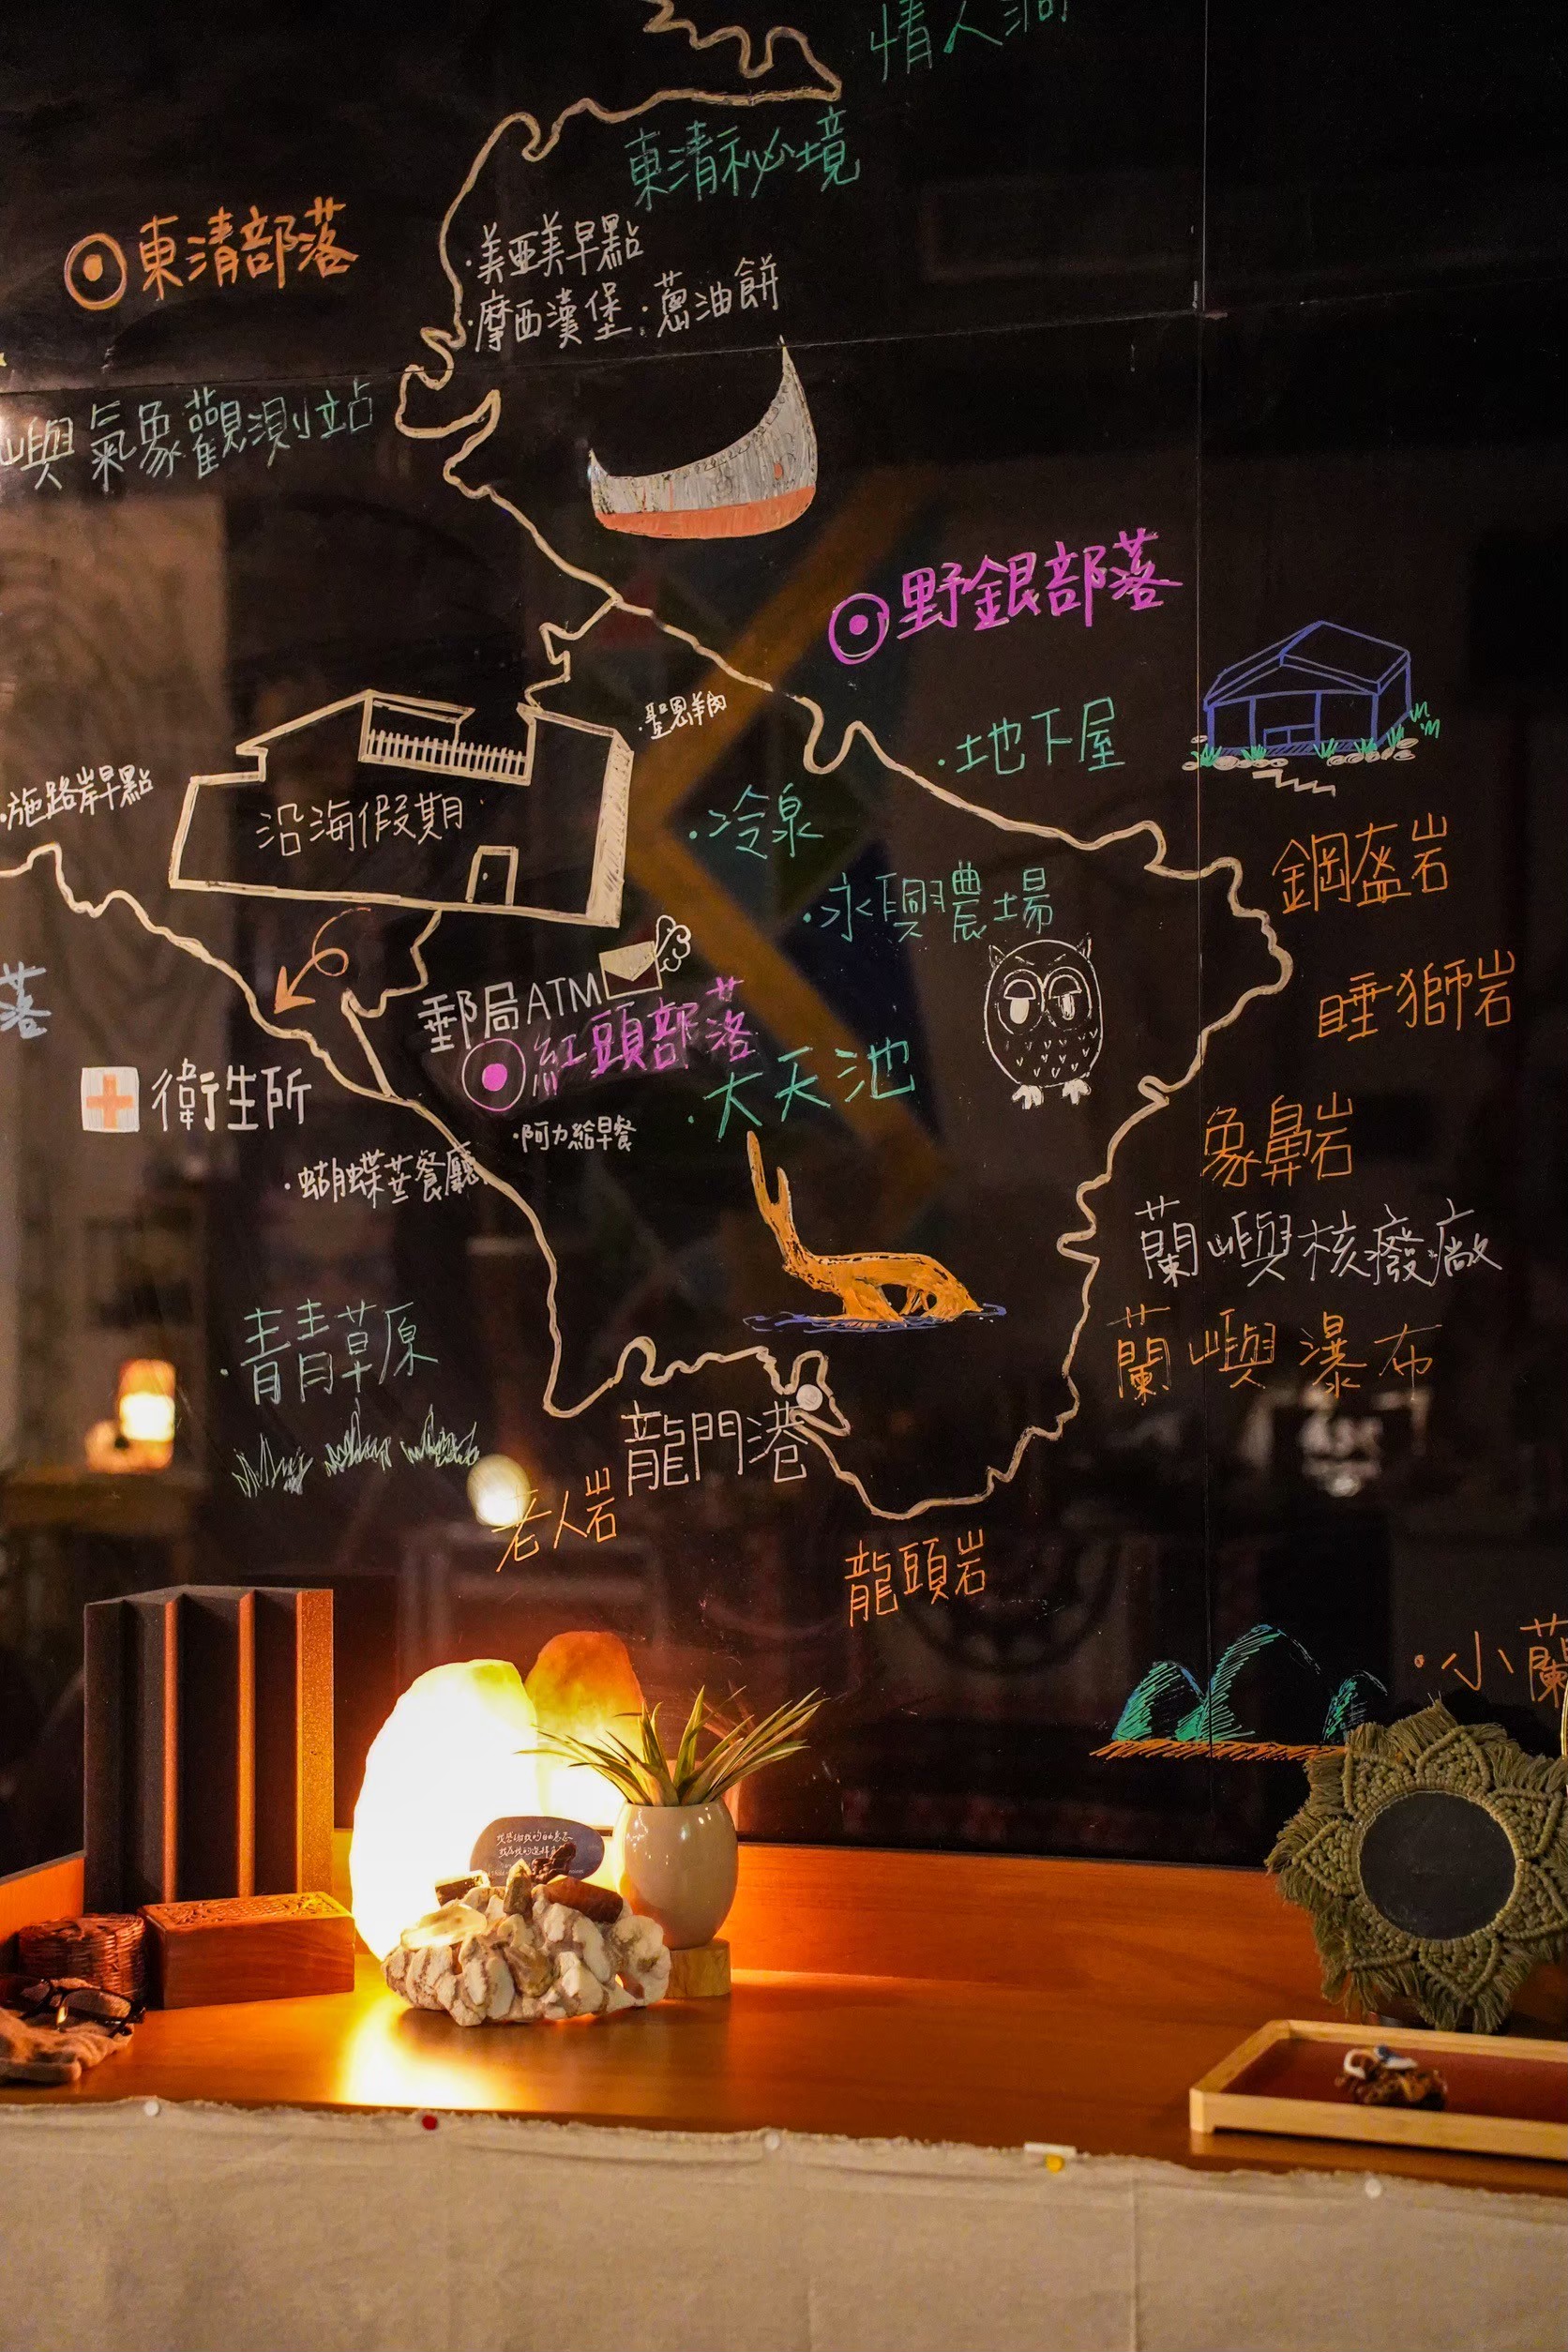 情人洞
東清秘境
東清部落
·美亜美早點
·摩西漢堡·蔥油餅
嶼氣象觀測站
野銀部落
·聖恩羊肉
·地下屋
·施路岸早點
沿海假期
·冷泉
鋼盔岩
·永興農場
落
睡獅岩
郵局ATM
紅頭部落
衛生所
·大天池
·阿力給早餐
象鼻岩
·蝴蝶蘭餐廳
蘭嶼核廢廠
·青青草原
蘭嶼瀑布
龍門港
老人岩
龍頭岩
·小蘭